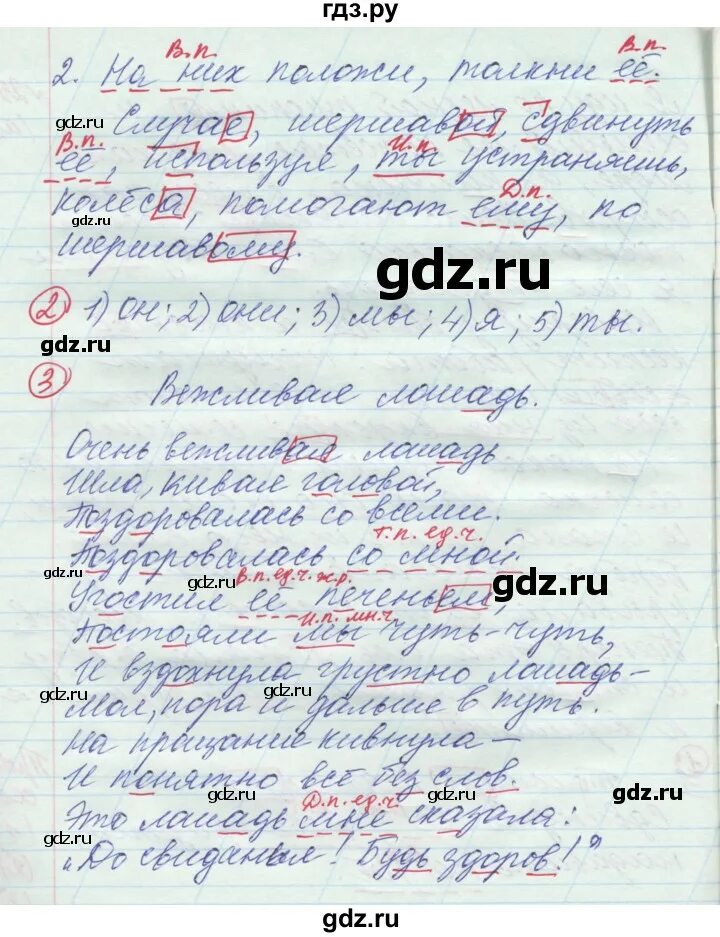 гдз.ру
В.п. В.п.
2. На них положи, толкни её.
Случае, шершавой, сдвинуть
В.п. И.п.
её, используя, ты устраняешь,
Д.п.
колёса, помогают ему, по
gdz.ru
шершавому.
gdz.ru
2 1) он; 2) они; 3) мы; 4) я; 5) ты.
gdz.ru
gdz.ru
3 Вежливая лошадь.
Очень вежливая лошадь
gdz.ru
Шла, кивая головой,
Поздоровалась со всеми.
Т.п. ед.ч.
Поздоровалась со мной.
gdz.ru
В.п. ед.ч. ж.р.
Угостил её печеньем
И.п. мн.ч.
Постояли мы чуть-чуть,
И вздохнула грустно лошадь –
gdz.ru gdz.ru
Мол, пора и дальше в путь.
На прощание кивнула –
И понятно всё без слов.
gdz.ru gdz.ru
Д.п. ед.ч.
Это лошадь мне сказала:
„До свиданья! Будь здоров!"
gdz.ru
gdz.ru
гдз.ру